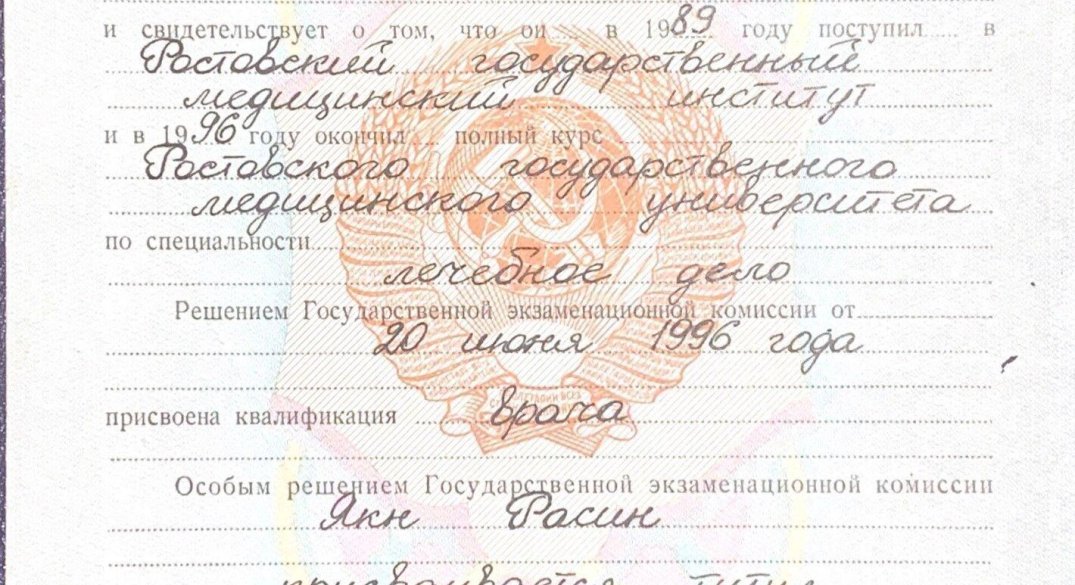 и свидетельствует о том, что он в 1989 году поступил в
Ростовский государственный
медицинский институт
и в 1996 году окончил полный курс
Ростовского государственного
медицинского университета
по специальности
лечебное дело
Решением Государственной экзаменационной комиссии от
20 июня 1996 года
присвоена квалификация врача
Особым решением Государственной экзаменационной комиссии
Якн Расин
присваивается титул